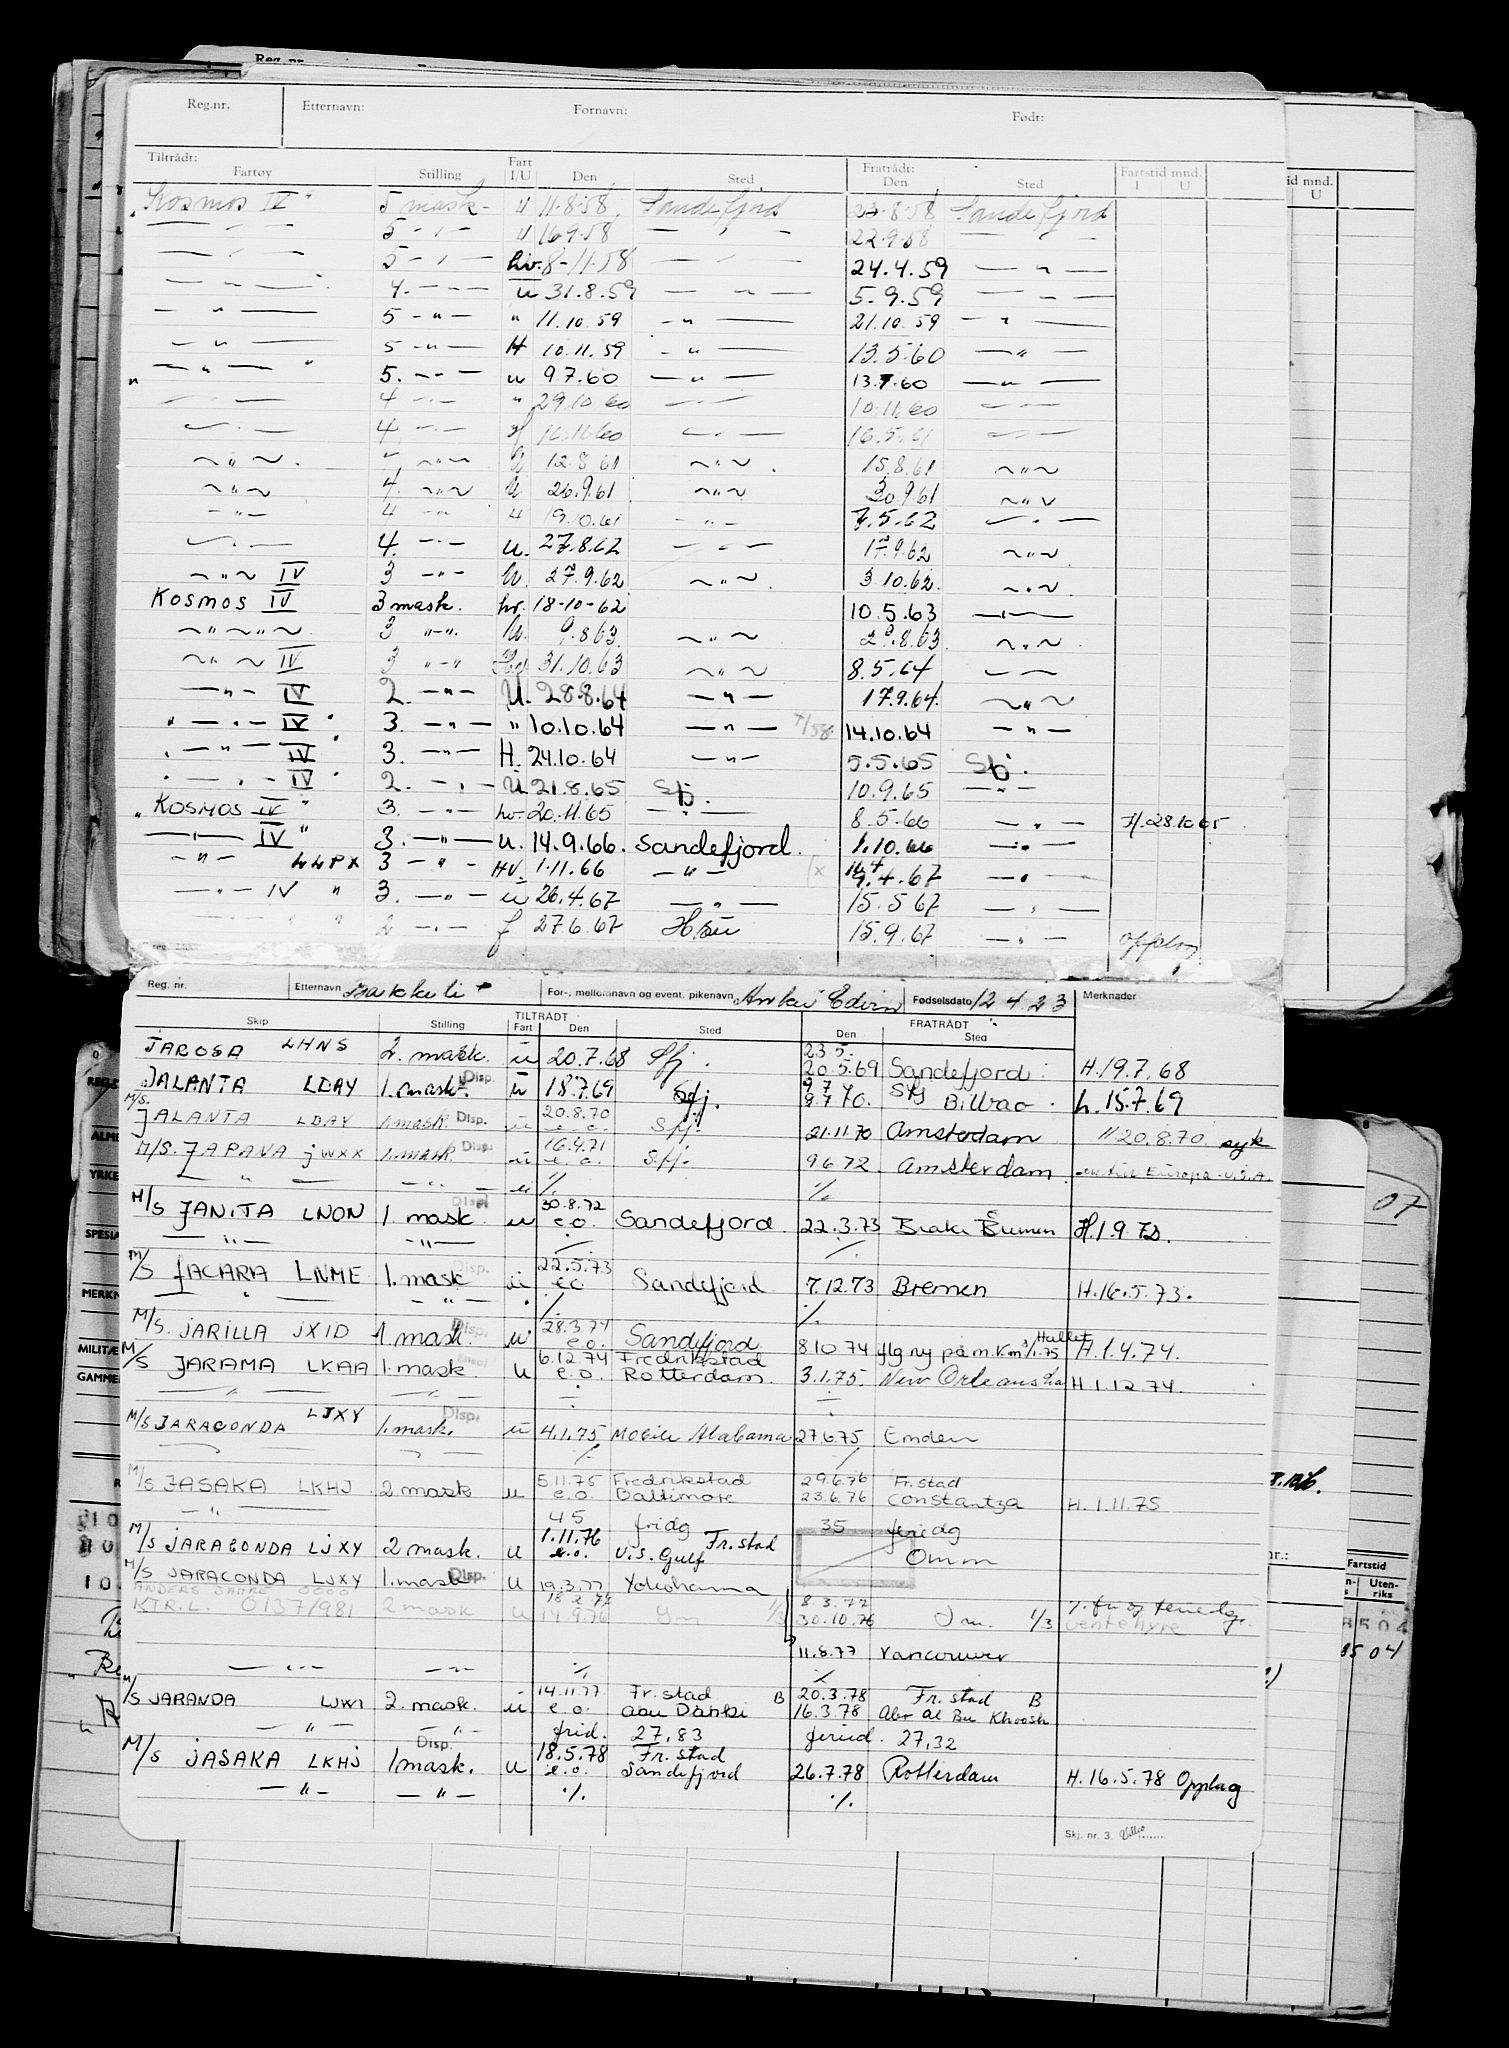 Reg.nr. Etternavn: Fornavn: Født:
Tiltrådt: Fratrådt:
Fartøy Stilling Fart I/U Den Sted Den Sted Fartstid mnd. I U
"Kosmos IV" 5 mask - U 11.8.58. Sandefjord 27.8.58 Sandefjord
— " — 5 - " - U 16.9.58 — " — 22.9.58 — " —
— " — 5 - " - hv. 8-11-58 — " — 24.4.59 — " —
— " — 4. - " - u 31.8.59 — " — 5.9.59 — " —
— " — 5 - " - " 11.10.59 - " — 21.10.59 — " —
— " — 5 - " - H 10.11.59 - " — 13.5.60 — " —
" — " — " 5. - " - u 9.7.60 — " — 13.7.60 — " —
— " — 4 - " - " 29.10.60 — " — 10.11.60 — " —
— " — 4, - " - 16.11.60 — " — 16.5.61 — " —
~ " ~ . 4, ~ " ~ 12.8.61 ~ " ~ . 15.8.61 ~ " ~
~ " ~ 4. ~ " ~ U. 26.9.61 ~ " ~ 30.9.61 ~ " ~
- " - 4 - " - 19.10.61 - " - 7.5.62 — " —
— " — 4. - " - u. 27.8.62 — " — 17.9.62 ~ " ~
~ " ~ IV 3 - " - U. 27.9.62 ~ " ~ . 3.10.62. ~ " ~
KOSMOS IV 3 mask. hv. 18-10-62 10.5.63 — " —
~ " ~ " ~ 3 " - ". U. 9.8.63. ~ " ~ 29.8.63. ~ " ~
~ " ~ IV 3 " - " 31.10.63 ~ " ~ 8.5.64 — " —
— " - IV 2. - " - U. 28.8.64 — " — 17.9.64. ~ " ~
" — " — IV " 3. - " - " 10.10.64 — " — 7/58 14.10.64 - " -
" — " — IV " 3. - " - H. 24.10.64 — " — 5.5.65 Sfj.
" — " - IV " 2. - " - U. 21.8.65 Sfj. 10.9.65 - " -
"KOSMOS IV" 3. - " - hv. 20.11.65 — " — 8.5.66 — " — H. 28.10.65
— " — IV " 3. - " - u. 14.9.66. Sandefjord. 1.10.66 — " —
- " - LLPX 3 - " - HV. 1.11.66 — " — 9.4.67 — " —
— " - IV " 3. - " - u 26.4.67 — " — 15.5.67 — " —
" " 2 - " - f 27.6.67 15.9.67 — " — opplag
Reg. nr. Etternavn Bakkeli For-, mellomnavn og event. pikenavn Edvin Fødselsdato 12 4 23 Merknader
TILTRÅDT FRATRÅDT
Skip Stilling Fart Den Sted Den Sted
23.5.
JAROSA LHNS 2. mask. u 20.7.68 Sfj. 20.5.69 Sandefjord H. 19.7.68
JALANTA LDAY 1. mask. Disp. u 18.7.69 Sfj. 9.7.70 Sfj Bilbao. h. 15.7.69
M/S. JALANTA LDAY 1. mask. Disp. u 20.8.70 e.o. Sfj. 21.11.70 Amsterdam H 20.8.70. syk
M/S. JAPANA JWXX 1. mask. Disp. u 16.4.71 e.o. Sfj. 9.6.72. Amsterdam. Europa - U.S.A.
— " — - " - u % %
M/S JANITA LNON 1. mask. Disp. u 30.8.72 e.o. Sandefjord 22.3.73 Brake Bremen H. 1.9.72.
— " — - " - % %
M/S JACARA LNME 1. mask Disp. u 22.5.73 e.o. Sandefjord 7.12.73 Bremen H. 16.5.73.
— " — - " - " % %
M/S. JARILLA JXID 1. mask. Disp. u 28.3.74 e.o. Sandefjord 8.10.74 H. 1.4.74.
M/S JARAMA LKAA 1. mask. Disp. u 6.12.74 Fredrikstad
e.o. Rotterdam. 3.1.75. New Orleans La H 1.12.74.
— " — - " - % %
M/S JARACONDA LJXY 1. mask. Disp. u 4.1.75 Mobile Alabama 27.6.75 Emden
% %
M/S JASAKA LKHJ 2. mask u 5.11.75 Fredrikstad 29.6.76 Fr.stad
— " — e.o. Baltimore 23.6.76 Constantza H. 1.11.75
45 fridg 35 feriedg
M/S JARACONDA LJXY 2 mask. u 1.11.76 Fr.stad
e.o. U.S. Gulf Omm
M/S JARACONDA LJXY 1. mask Disp. u 19.3.77 Yokohama
ANDERS JAHRE 0000 18.2.77 8.3.77
KTR.L. 0137/981 2 mask u 14.9.76 1/3 30.10.76 1/3
11.8.77 Vancouver
— " — - " - % %
M/S JARANDA LJWI 2. mask. u 14.11.77 Fr.stad B 20.3.78 Fr.stad B
e.o. Abu Dahbi 16.3.78 Abr Al Bu Khoosh
— " — - " - frid. 27,83 feried. 27,32
M/S JASAKA LKHJ 1. mask. Disp. u 18.5.78 Fr.stad
e.o. Sandefjord 26.7.78 Rotterdam H. 16.5.78 Opplag
— " - — " — % %
Skj. nr. 3.